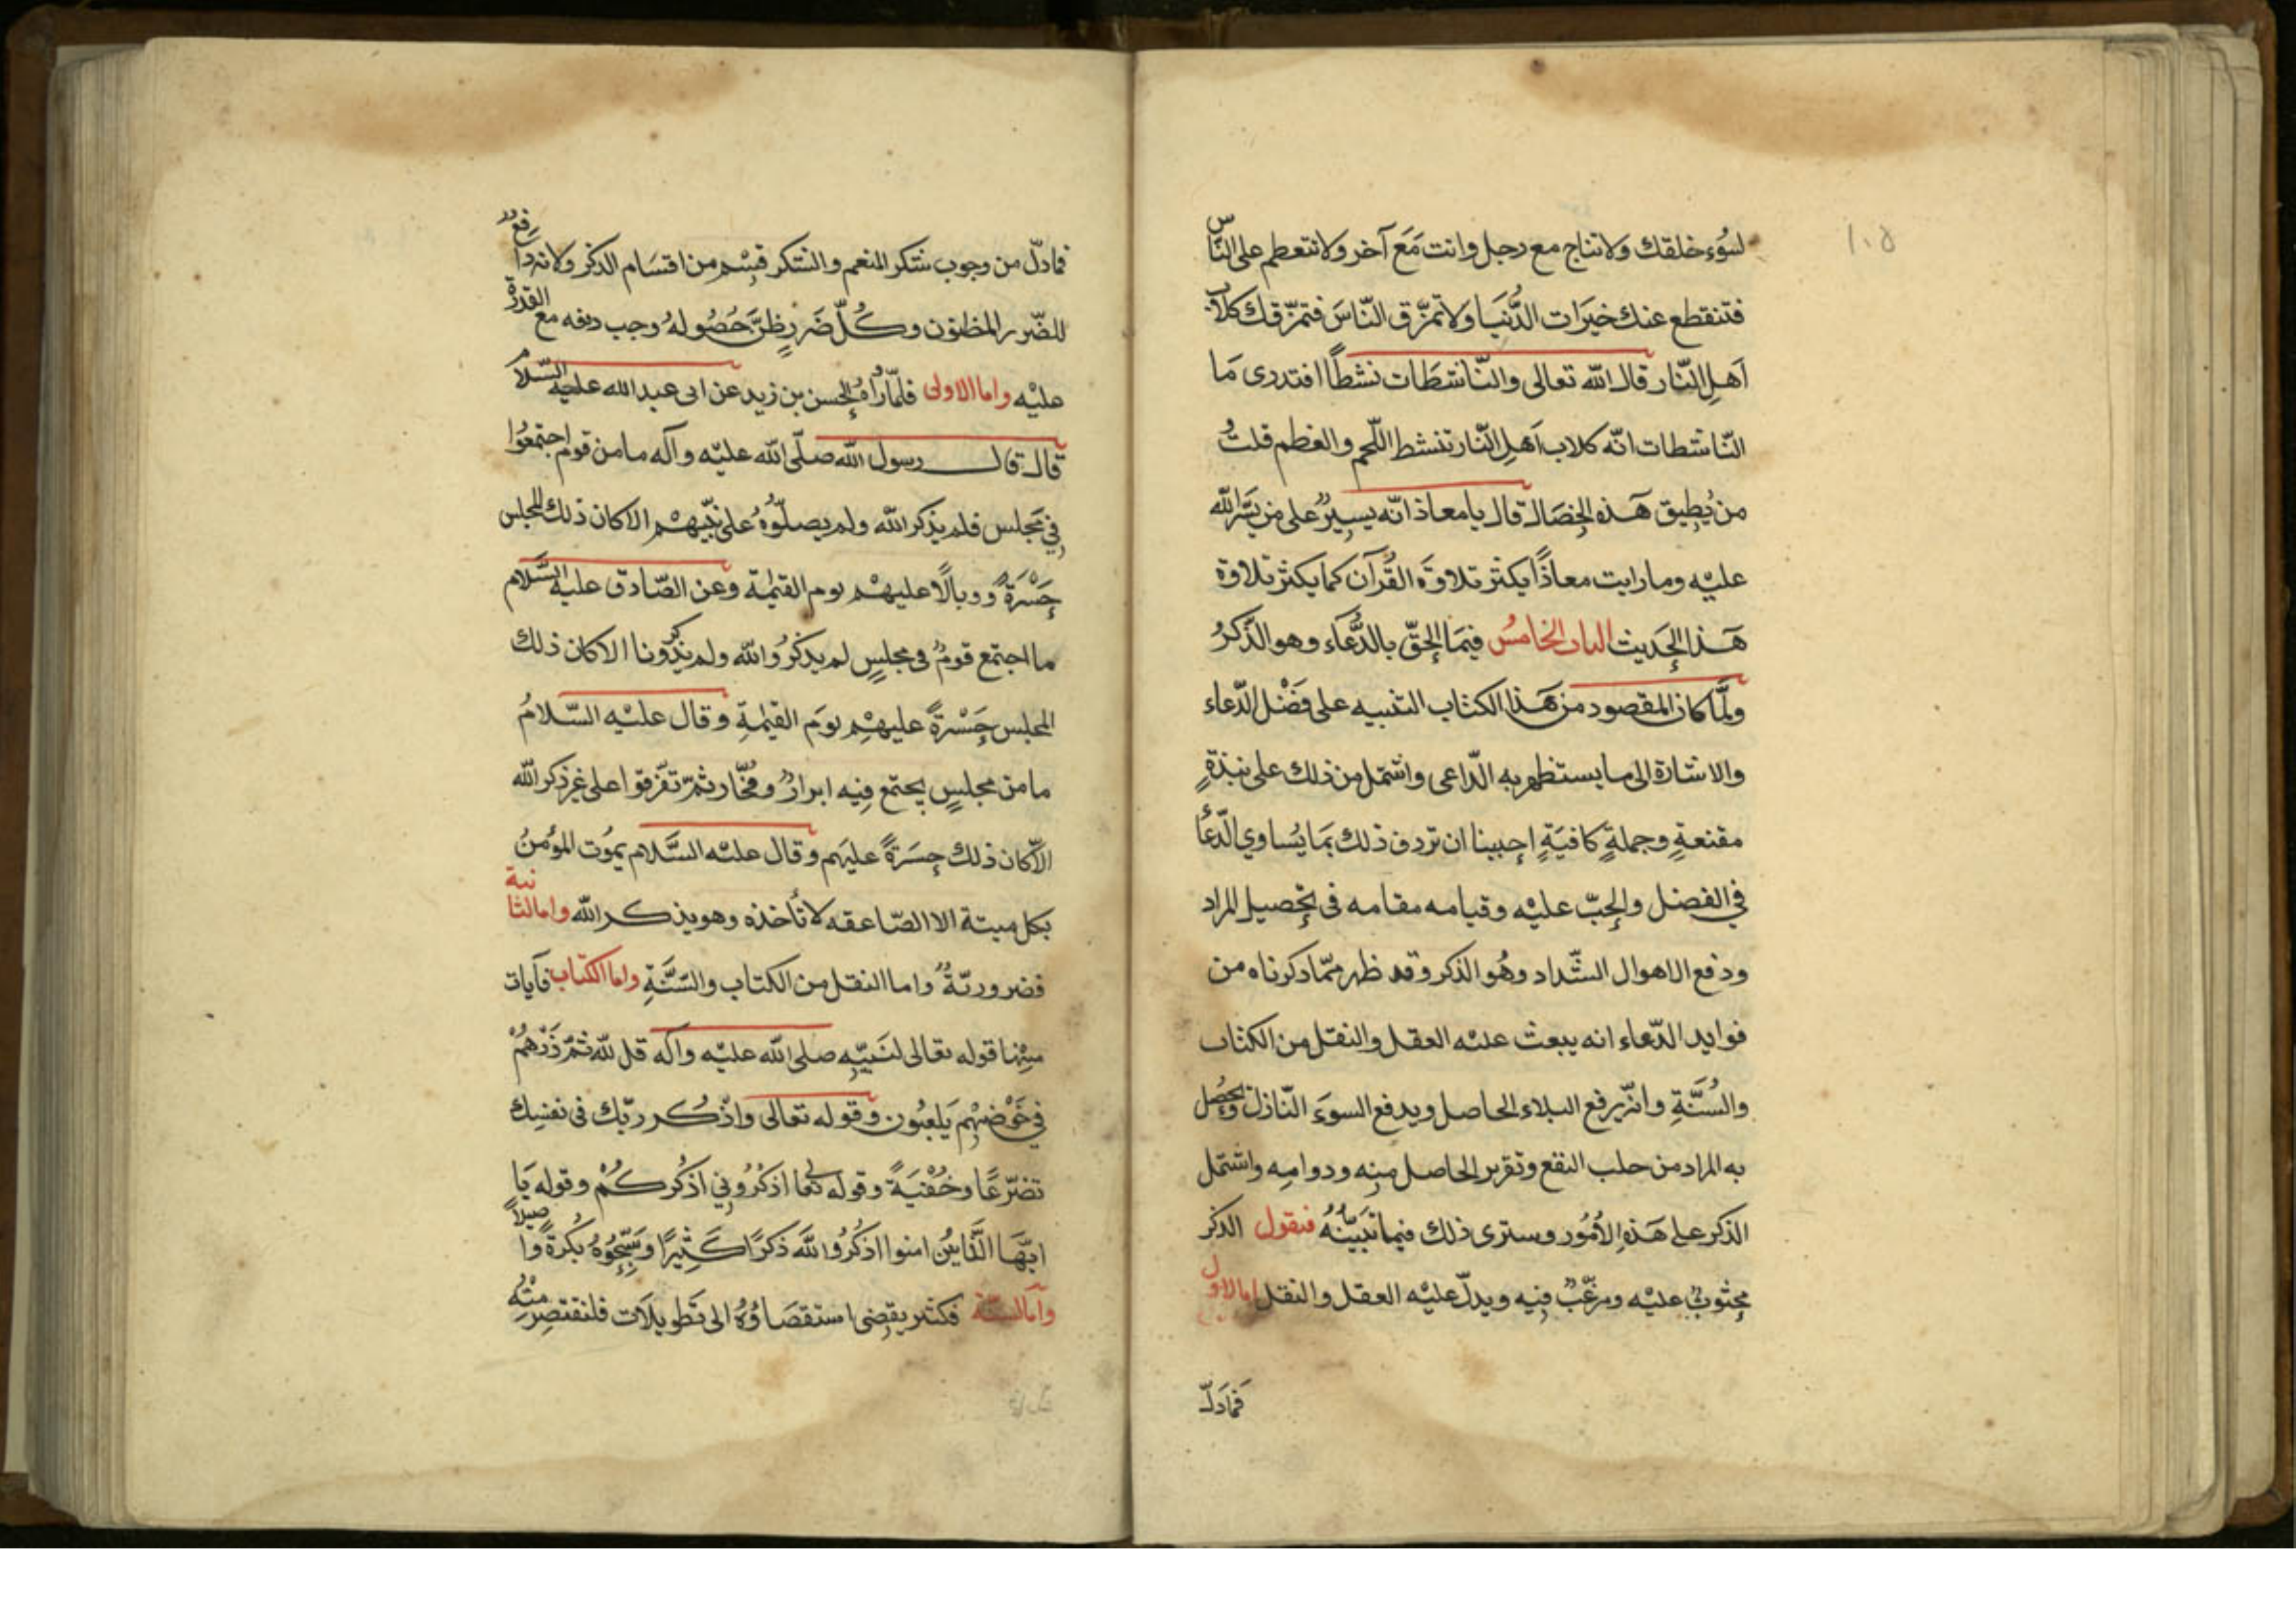 ١٠٥
لسُوء خلقك ولا تناج مع رجل وانت مَعَ آخر ولا تتعظم على النّاس
فتنقطع عنك خيرَات الدُّنيَا ولا تمزّق النّاسَ فتمزّقك كلاب
اَهلِ النّار قال الله تعالى والنّاشطَات نشطاً افتدرى مَا
النّاشطات انّه كلاب اَهلِ النّار تنشط اللّحم والعظم قلتُ
من يُطِيق هَذه الخِصَال قال يا معاذ انّه يسِيرٌ على من يسّر الله
عليْه وما رايت معاذاً يكثر تلاوَة القُرآن كما يكثر تلاوة
هَذا الحَديث الباب الخامسُ فيمَا الحقّ بالدُّعَاء وهو الذّكرُ
ولمَّا كان المقصود من هَذا الكتاب التنبيه على فَضْل الدّعاء
والاشارة الى ما يستظهر به الدّاعى واشتمل من ذلك على نبذةٍ
مقنعةٍ وجملةٍ كافيَةٍ احببنا ان نردف ذلك بمَا يُساوي الدّعأ
في الفضل والحثّ عليْه وقيامه مقامه فى تحصيل المراد
ودفع الاهوال الشّداد وهُو الذكر وقد ظهر ممّا ذكرناه من
فوايد الدّعاء انه يبعث عليْه العقل والنقل من الكتاب
والسُّنَّةِ وانّه يرفع البلاء الحاصل ويدفع السوءَ النّازل ويحصُل
به المراد من جلب النفع وتقرير الحاصل منِه ودوامِه واشتمل
الذكر على هَذِه الاُمُور وسترى ذلك فيما نُبَيّنُهُ فنقول الذكر
محثوثٌ عليْه ومرغّبٌ فيه ويدلّ عليْه العقل والنقل اما الاول
فمَادَلّ
فمادلّ من وجوب شكر المنعم والشكر قِسْم من اقسَام الذكر ولانه دافعٌ
للضّرر المظنون وكُلّ ضَررٍ ظنَّ حَصُولهُ وجب دفعه مع القدرة
عليْه واما الاولى فلمّا رواهُ الحسن بن زيد عن ابى عبد الله عليه السّلام
قال قال رسول الله صلّى الله عليْه وآله ما من قوم اجتمعُوا
فِي مَجلس فلم يذكر الله ولم يصلّوُا على نبّيهمْ الا كان ذلك المجلس
حَسْرَةً ووبالًا عليهمْ يوم القيٰمة وعن الصّادق عليه السَّلام
ما اجتمع قومٌ فى مجلسٍ لم يذكرُوا الله ولم يذكرونا الا كان ذلك
المجلس حَسْرةً عليهمْ يوَم القيٰمةِ وقال عليْه السّلامُ
ما من مجلسٍ يجتمع فِيه ابرارٌ وفُجّار ثمّ تفّرقوا على غير ذكر الله
الّا كان ذلك حسَرةً عليهم وقال عليْه السَّلام يموُت المؤمنُ
بكل ميتة الا الصّاعقه لا تأخذه وهو يذكر الله واما الثانية
فضروريّةٌ واما النقل من الكتاب والسّنَّةِ واما الكتاب فآيات
مِنْها قوله تعالى لنَبيّهِ صلى الله عليْه وآله قل الله ثمّ ذَرْهُمْ
في خَوْضهِم يَلعبُون وقوله تعالى واذْكر ربّك فى نفسِك
تضرّعًا وخُفْيَةً وقوله تعالى اذكرُونِي اذكُركُمْ وقوله يَا
ايّهَا الَّذَيْن امنوا اذكُرُوا الله ذكرًا كَثِيرًا وسَبّحُوهُ بُكرةً واصيلاً
وامّا السنّة فكثير يقضى استقصَاؤُهُ الى تَطويلَات فلنقتصِر منْهُ